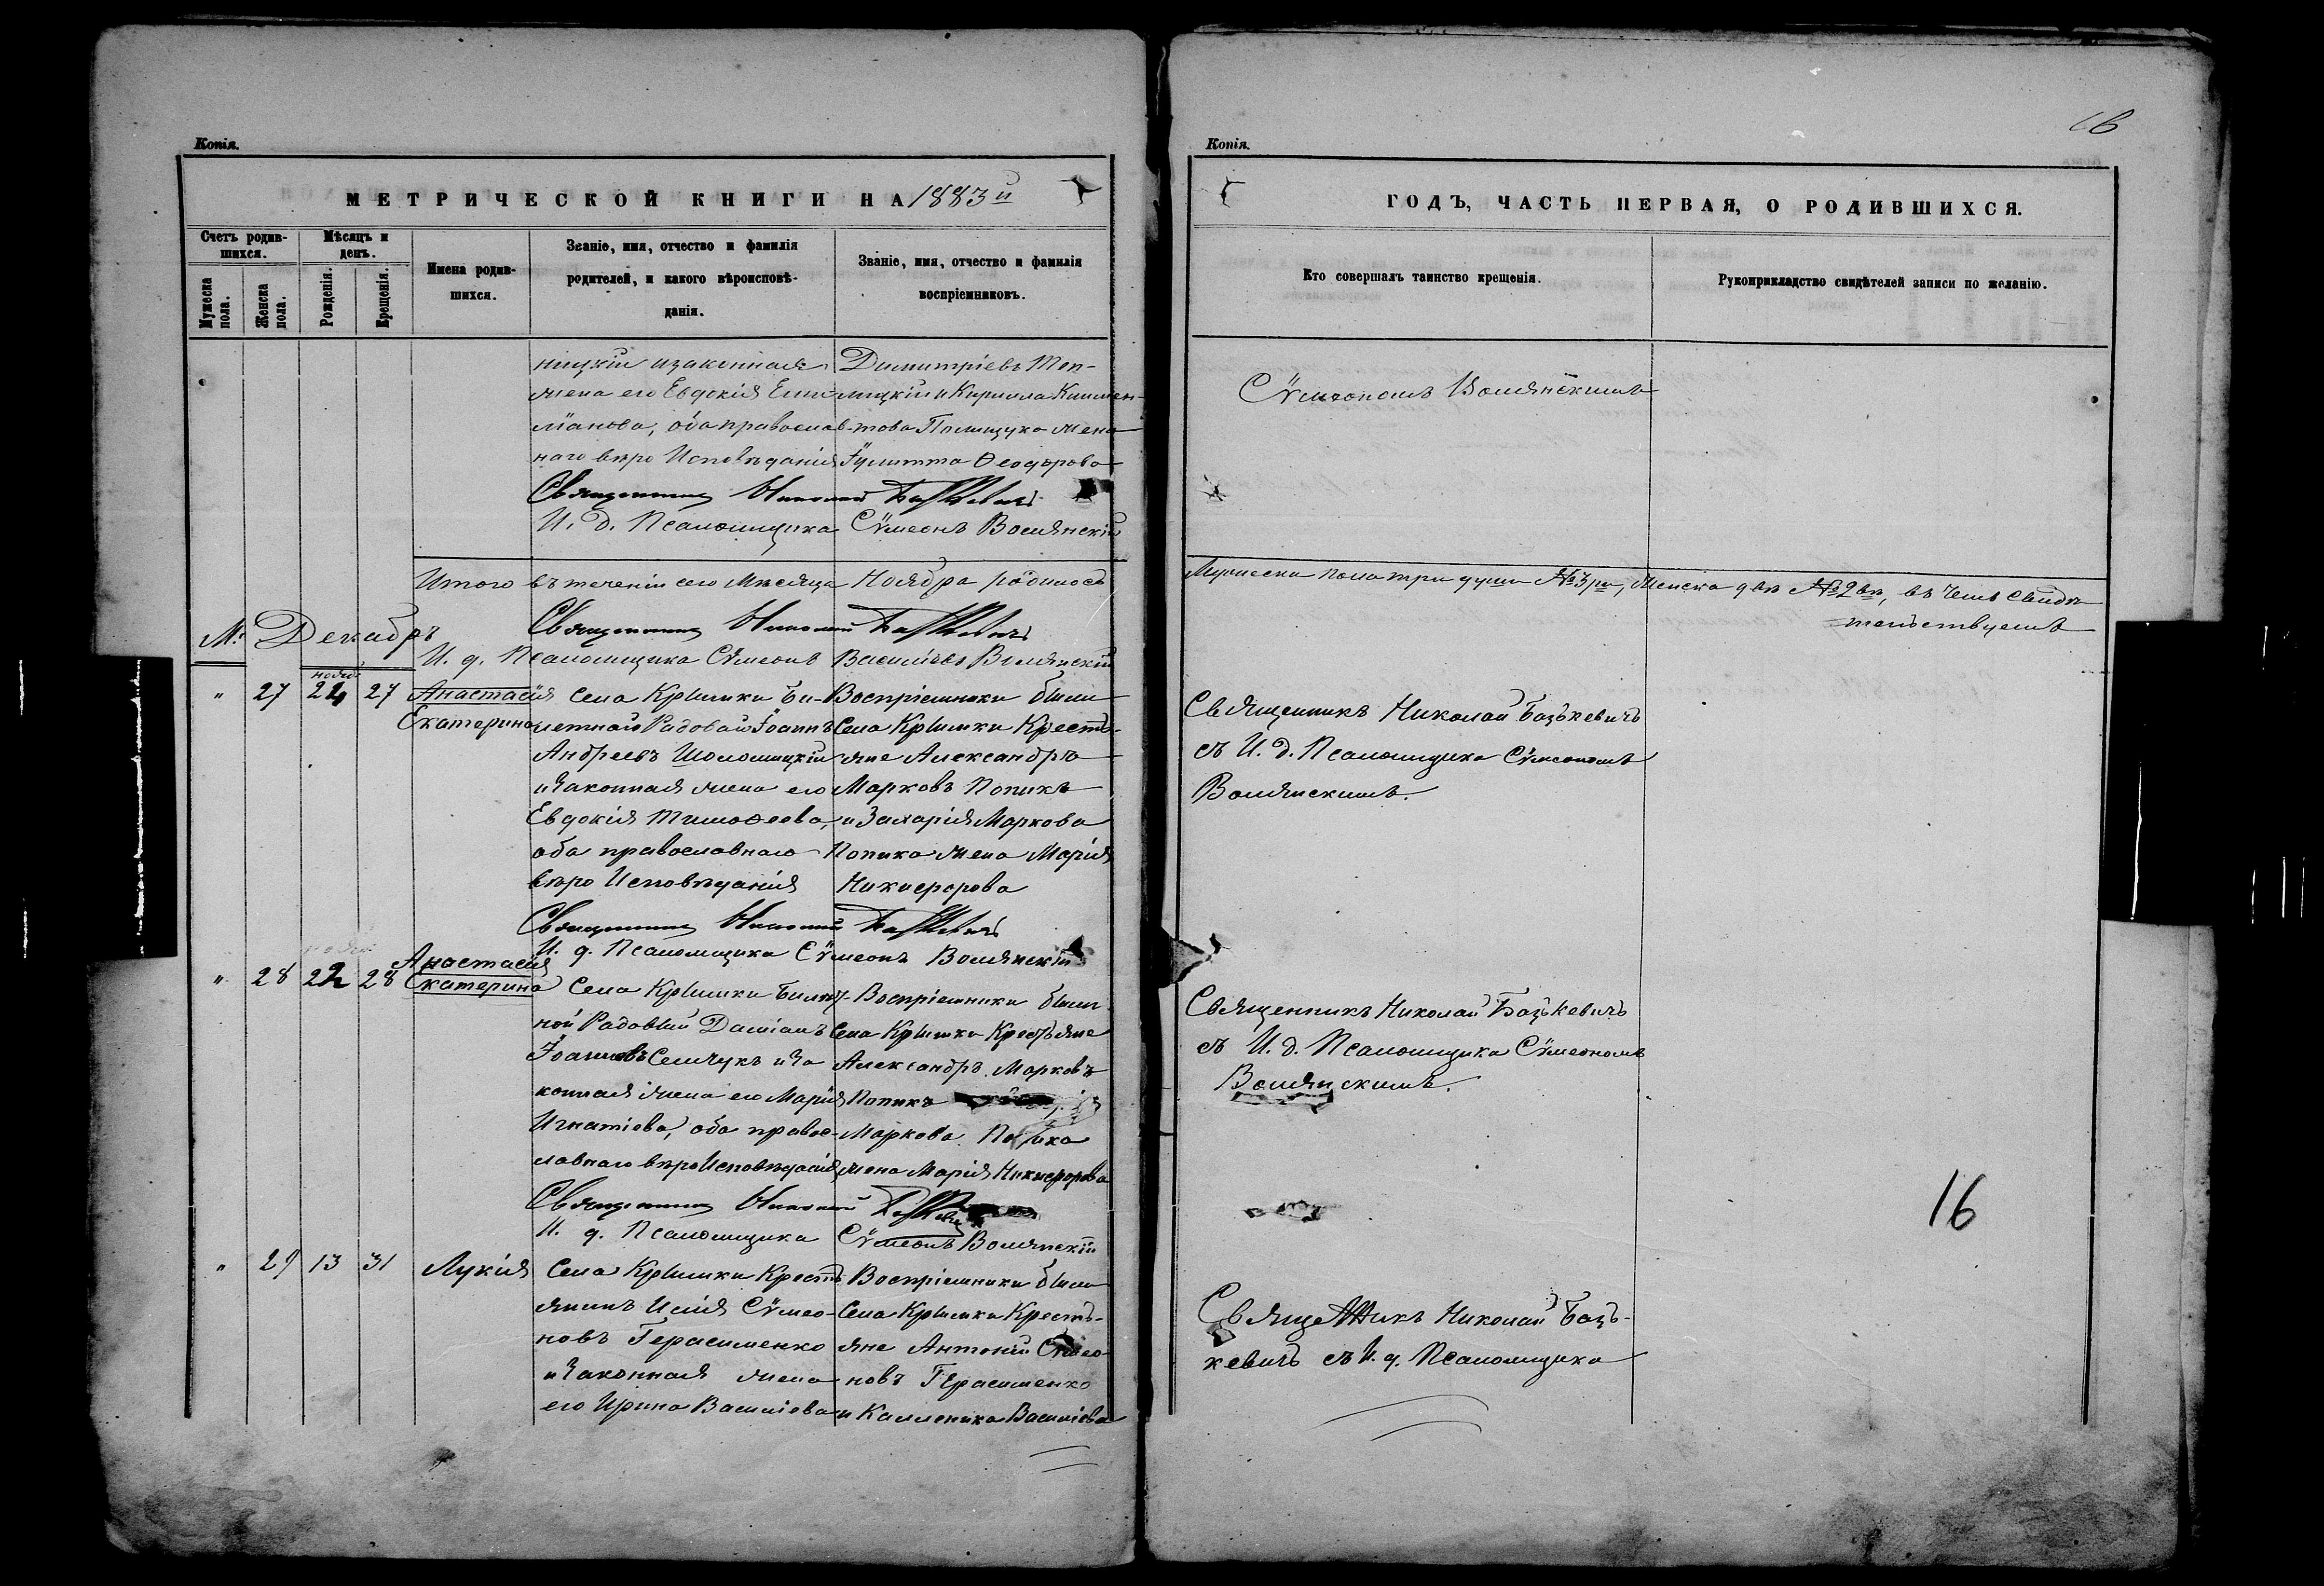 Копія.
МЕТРИЧЕСКОЙ КНИГИ НА 1883й
Счетъ родив-
шихся.
Мѣсяцъ и
день.
Мужеска
пола.
Женска
пола.
Рожденія.
Крещенія.
Имена родив-
шихся.
Званіе, имя, отчество и фамилія
родителей, и какого вѣроисповѣ-
данія.
Званіе, имя, отчество и фамилія
воспріемниковъ.
ницкій изаконная
жена его Евдокія
оба православ-
наго вѣро Исповѣданія
Димитріевъ
Ѳеодорова
Священникъ Николай
И. д. Псаломщика Сѵмеонъ Волянскій
Итого въ теченіи сего Мѣсяца Ноября родилось
Священникъ Николай
М. Декабрь
И. д. Псаломщика Сѵмеонъ Василіевъ Волянскій
" 27 22 27
Анастасія
Екатерина
Села Крымки Би-
летной Рядовой Іоаннъ
Андреевъ
и Законная жена его
Евдокія Тимоѳеева,
оба православнаго
вѣро Исповѣданія
Воспріемники были
Села Крымки Кресть-
яне Александръ
Марковъ Попикъ
и Захарія Маркова
Попика жена Марія
Никифорова
Священникъ Николай
И. д. Псаломщика Сѵмеонъ Волянскій
" 28 22 28
Анастасія
Екатерина
Села Крымки Билет-
ной Рядовый Даміанъ
Іоанновъ Семчукъ и За
конная жена его Марія
Игнатіева, оба правос-
лавнаго вѣро Исповѣданія
Воспріемники были
Села Крымки Крестьяне
Александръ Марковъ
Попикъ
Маркова Попика
жена Марія Никифорова
Священникъ Николай
И. д. Псаломщика Сѵмеонъ Волянскій
" 29 13 31 Лукія
Села Крымки Кресть
янинъ Исаія Сѵмео-
новъ Герасименко
и Законная жена
его Ирина Василіева
Воспріемники были
Села Крымки Кресть-
яне Антоній Сѵмео
новъ Герасименко
и Каллиника Василіева
16
Копія.
ГОДЪ, ЧАСТЬ ПЕРВАЯ, О РОДИВШИХСЯ.
Кто совершалъ таинство крещенія.
Рукоприкладство свидѣтелей записи по желанію.
Сѵмеономъ Волянскимъ
Мужеска пола три души №3ри, Женска двѣ №2вѣ, въ чемъ свидѣ
тельствуемъ
Священникъ Николай Бацкевичъ
съ И. д. Псаломщика Сѵмеономъ
Волянскимъ.
Священникъ Николай Бацкевичъ
съ И. д. Псаломщика Сѵмеономъ
Волянскимъ.
16
Священникъ Николай Бац-
кевичъ съ И. д. Псаломщика